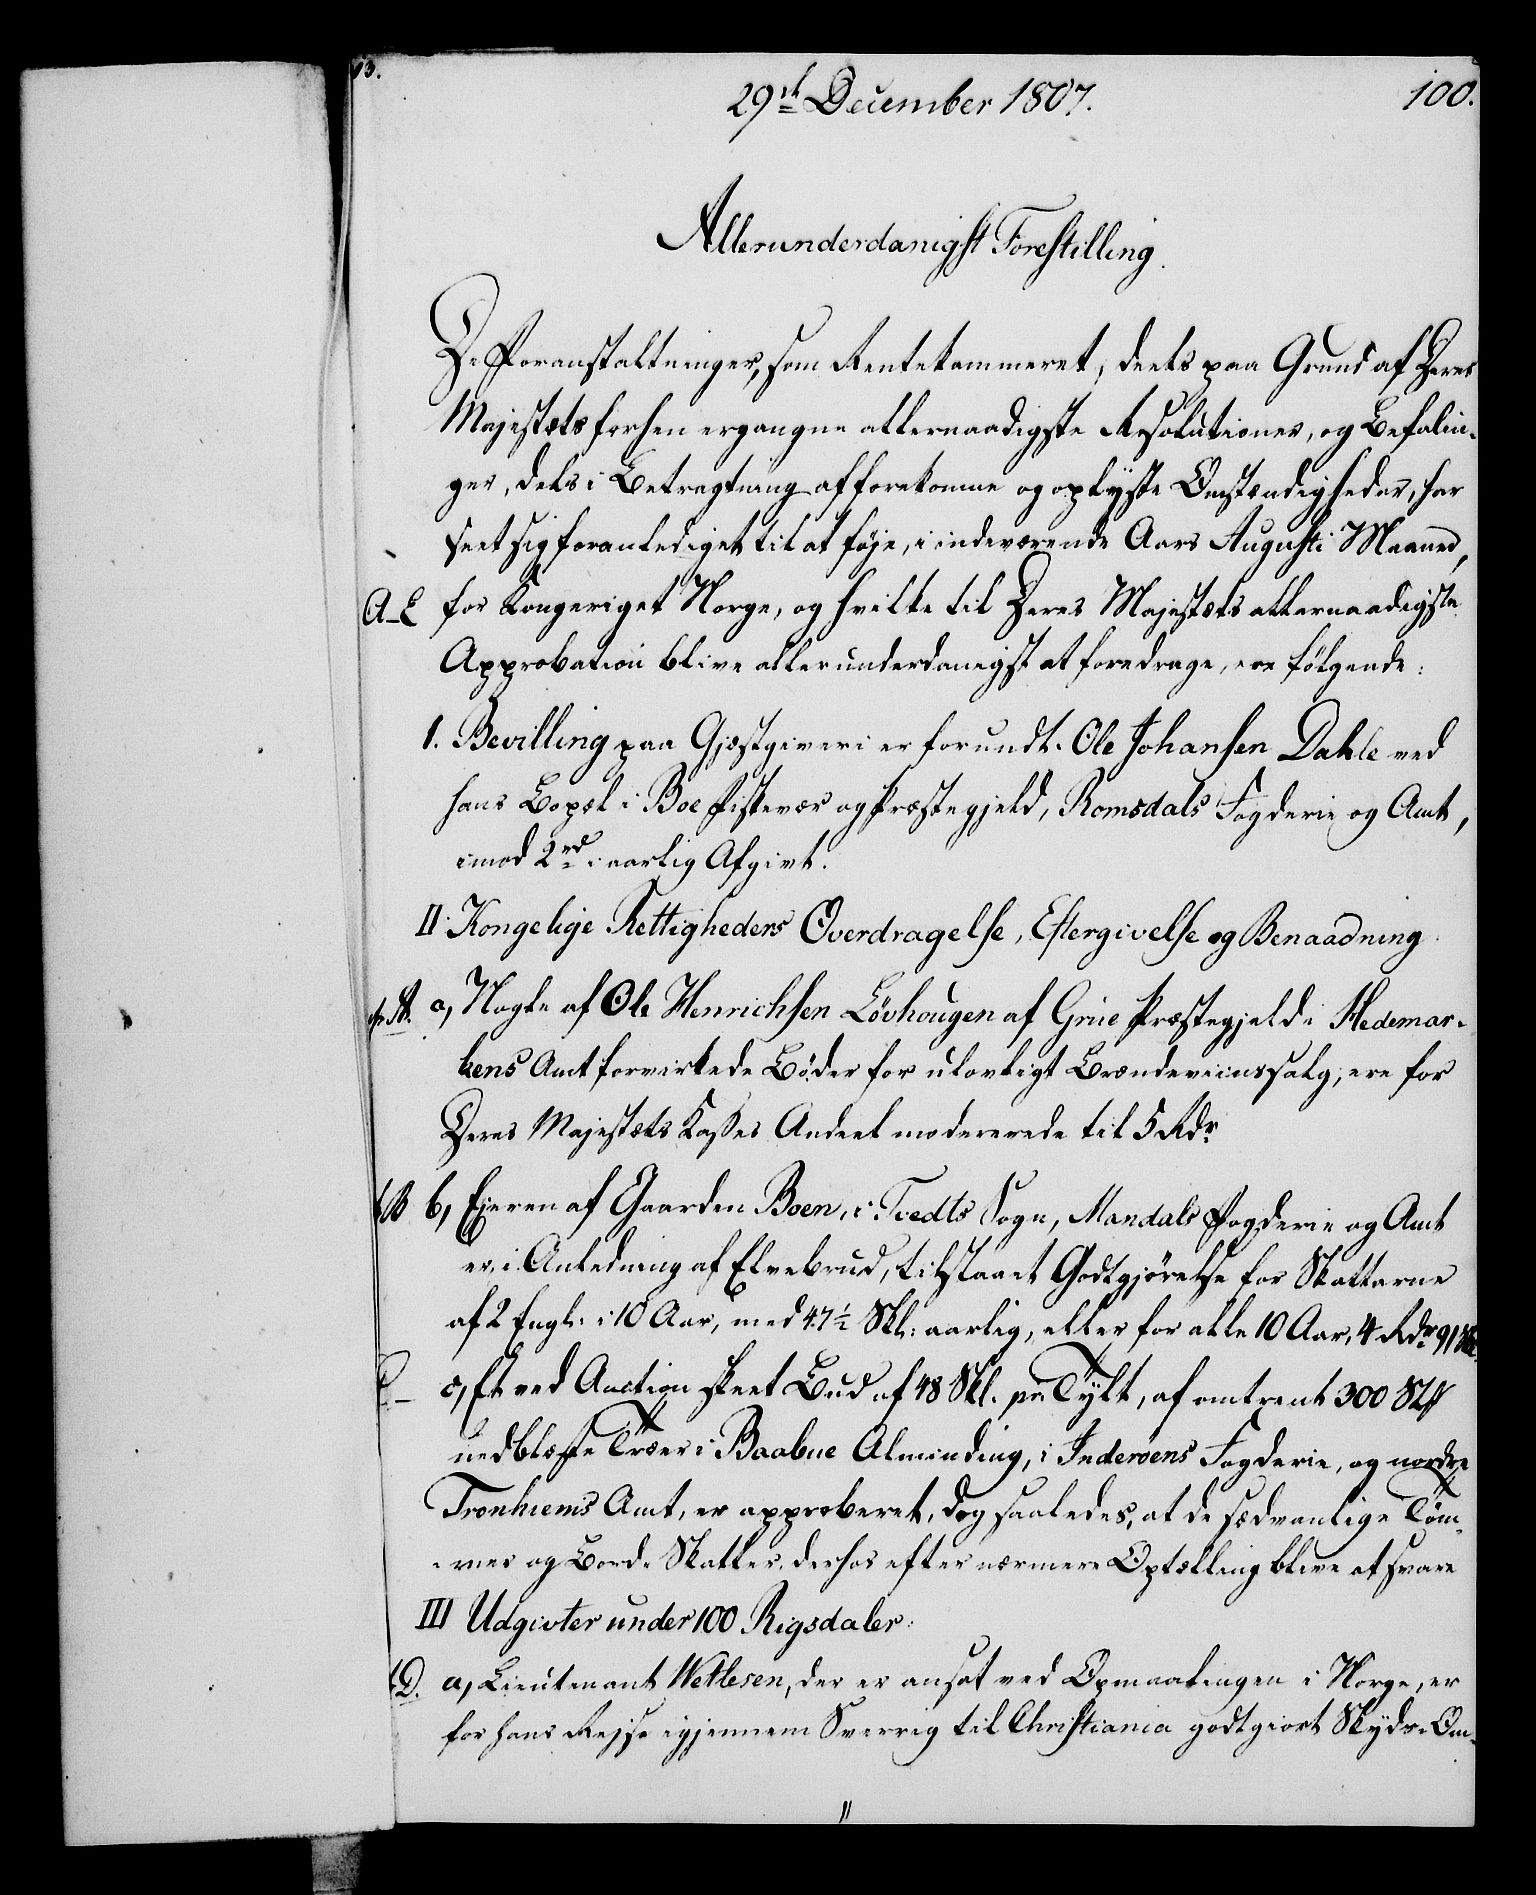 13.
29de December 1807.
100.
Allerunderdanigst Forestilling.
De Foranstaltninger, som Rentekammeret, deels paa Grund af Deres
Majestæts forhen ergangne allernaadigste Resolutioner, og Befalin-
ger, dels i Betragtning af forekomne og oplyste Omstændigheder, har
seet sig foranlediget til at føje, i indeværende Aars Augusti Maaned,
A-E for Kongeriget Norge, og hvilke til Deres Majestæts allernaadigste
Approbation blive allerunderdanigst at foredrage, ere følgende:
1. Bevilling paa Gjæstgiveri er forundt. Ole Johansen Dahle ved
hans Bopæl i Boe Fiskevær og Præstegjeld, Romsdals Fogderie og Amt,
imod 2rd i aarlig Afgivt.
II. Kongelige Rettigheders Overdragelse, Eftergivelse og Benaadning
A. a, Nogle af Ole Henrichsen Lövhougen af Grue Præstegjeld i Hedemar-
kens Amt forvirkede Böder for ulovligt Brændeviinssalg, ere for
Deres Majestæts Kasses Andeel modererede til 5 Rdr
B b, Ejeren af Gaarden Boen, i Tvedts Sogn, Mandals Fogderie og Amt
er, i Anledning af Elvebrud, tilstaaet Godtgjörelse for Skatterne
af 2 Engl. i 10 Aar, med 47½ Skl: aarlig, eller for alle 10 Aar, 4 Rdr 91 Skl.
C- c, Et ved Auction skeet Bud af 48 Skl. pr Tylt, af omtrent 300 Stk
nedblæste Træer i Baabue Alminding, i Inderöens Fogderie, og nordre
Tronhiems Amt, er approberet, dog saaledes, at de sædvanlige Töm-
mer og Bord-Skatter derhos efter nærmere Optælling blive at svare
III Udgivter under 100 Rigsdaler:
D. a, Lieutenant Wetlesen, der er ansat ved Opmaalingen i Norge, er
for hans Rejse igjennem Sverrig til Christiania godtgiort Skyds-Om-